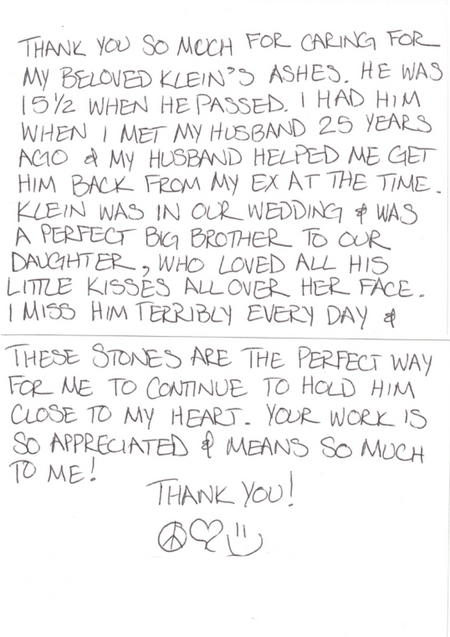 THANK YOU SO MUCH FOR CARING FOR
MY BELOVED KLEIN'S ASHES. HE WAS
15 1/2 WHEN HE PASSED. I HAD HIM
WHEN I MET MY HUSBAND 25 YEARS
AGO & MY HUSBAND HELPED ME GET
HIM BACK FROM MY EX AT THE TIME.
KLEIN WAS IN OUR WEDDING & WAS
A PERFECT BIG BROTHER TO OUR
DAUGHTER, WHO LOVED ALL HIS
LITTLE KISSES ALL OVER HER FACE.
I MISS HIM TERRIBLY EVERY DAY &
THESE STONES ARE THE PERFECT WAY
FOR ME TO CONTINUE TO HOLD HIM
CLOSE TO MY HEART. YOUR WORK IS
SO APPRECIATED & MEANS SO MUCH
TO ME!
THANK YOU!